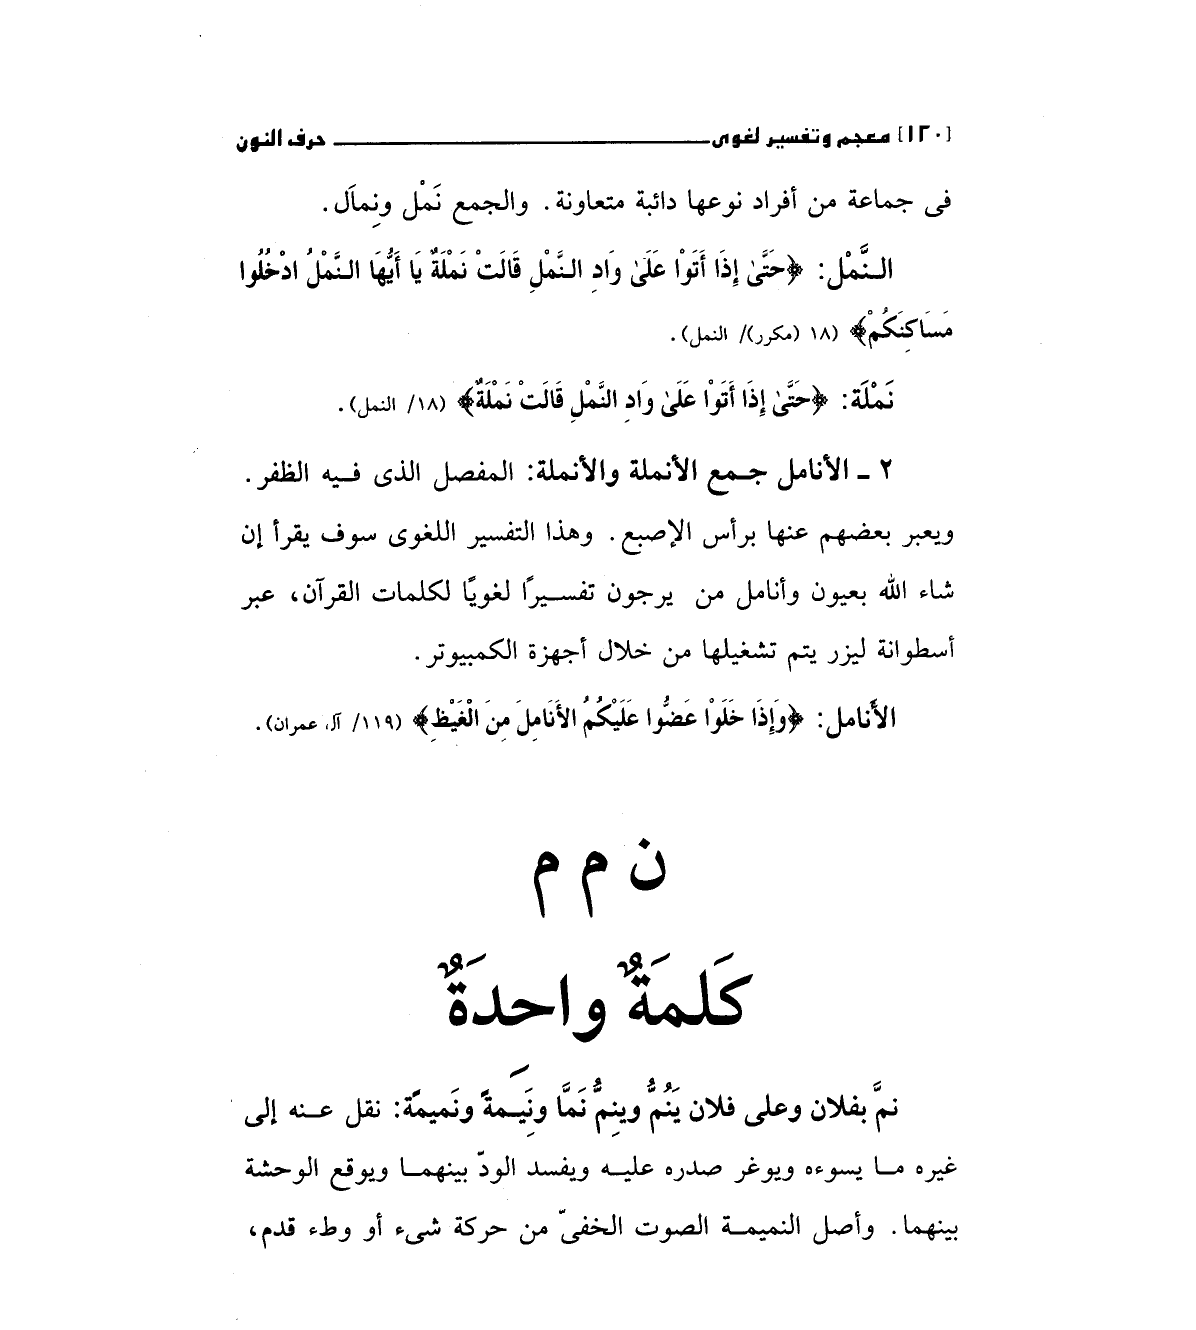 [١٢٠] معجم وتفسير لغوى ـــــــــــ حرف النون
فى جماعة من أفراد نوعها دائبة متعاونة. والجمع نَمْل ونِمال.
النَّمْل: ﴿حَتَّىٰ إِذَا أَتَوْا عَلَىٰ وَادِ النَّمْلِ قَالَتْ نَمْلَةٌ يَا أَيُّهَا النَّمْلُ ادْخُلُوا
مَسَاكِنَكُمْ﴾ (١٨ (مكرر)/ النمل).
نَمْلَة: ﴿حَتَّىٰ إِذَا أَتَوْا عَلَىٰ وَادِ النَّمْلِ قَالَتْ نَمْلَةٌ﴾ (١٨/ النمل).
٢ ـ الأنامل جمع الأنملة والأنملة: المفصل الذى فيه الظفر.
ويعبر بعضهم عنها برأس الإصبع. وهذا التفسير اللغوى سوف يقرأ إن
شاء الله بعيون وأنامل من يرجون تفسيرًا لغويًا لكلمات القرآن، عبر
أسطوانة ليزر يتم تشغيلها من خلال أجهزة الكمبيوتر.
الأَنامل: ﴿وَإِذَا خَلَوْا عَضُّوا عَلَيْكُمُ الأَنَامِلَ مِنَ الْغَيْظِ﴾ (١١٩/ آل عمران).
ن م م
كَلمَةٌ واحدَةٌ
نمَّ بفلان وعلى فلان يَنُمُّ وينِمُّ نَمًّا ونَمِيمةً ونَميمًة: نقل عنه إلى
غيره ما يسوءه ويوغر صدره عليه ويفسد الودّ بينهما ويوقع الوحشة
بينهما. وأصل النميمة الصوت الخفىّ من حركة شىء أو وطء قدم،